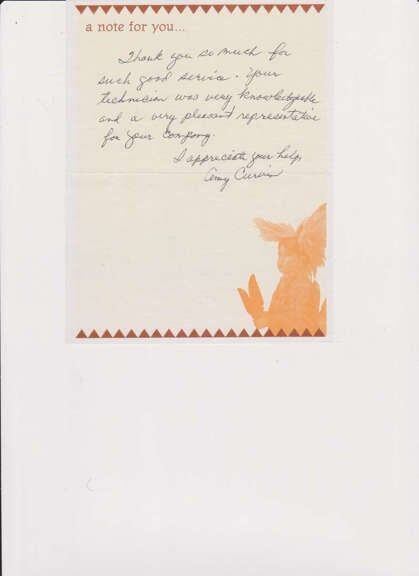 a note for you...
Thank you so much for
such good service. Your
technician was very knowledgeable
and a very pleasant representative
for your company.
I appreciate your help,
Amy Curvin